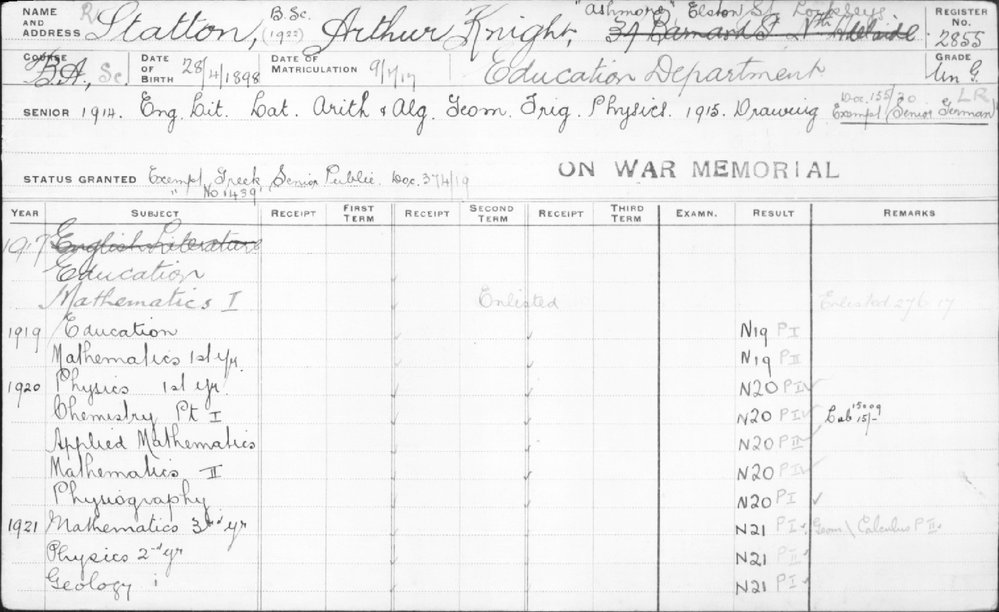 NAME AND ADDRESS R Statton, B.Sc. (1922) Arthur Knight, "Ashmore", Elston St. Lockleys
34 Barnard St. Nth Adelaide REGISTER No. 2855
COURSE B.A, Sc. DATE OF BIRTH 28/4/1898 DATE OF MATRICULATION 9/7/17 Education Department GRADE Un G.
SENIOR 1914. Eng. Lit. Lat. Arith & Alg. Geom. Trig. Physics. 1915. Drawing Doc. 155/20 LR
Exempt Senior German
STATUS GRANTED Exempt Greek Senior Public. Doc. 374/19 ON WAR MEMORIAL
"No 1439"
YEAR SUBJECT RECEIPT FIRST TERM RECEIPT SECOND TERM RECEIPT THIRD TERM EXAMN. RESULT REMARKS
1917 English Literature
Education
Mathematics I Enlisted Enlisted 27 6 17
1919 Education N19 P I
Mathematics 1st yr. N19 P II
1920 Physics 1st yr. N20 P II ✓
Chemistry Pt I N20 P II ✓ Lab 15/- 15009
Applied Mathematics N20 P II ✓
Mathematics II N20 P II ✓
Physiography N20 P I ✓
1921 Mathematics 3rd yr N21 P I ✓ Geom \ Calculus P II ✓
Physics 2nd yr N21 P II ✓
Geology i N21 P I ✓